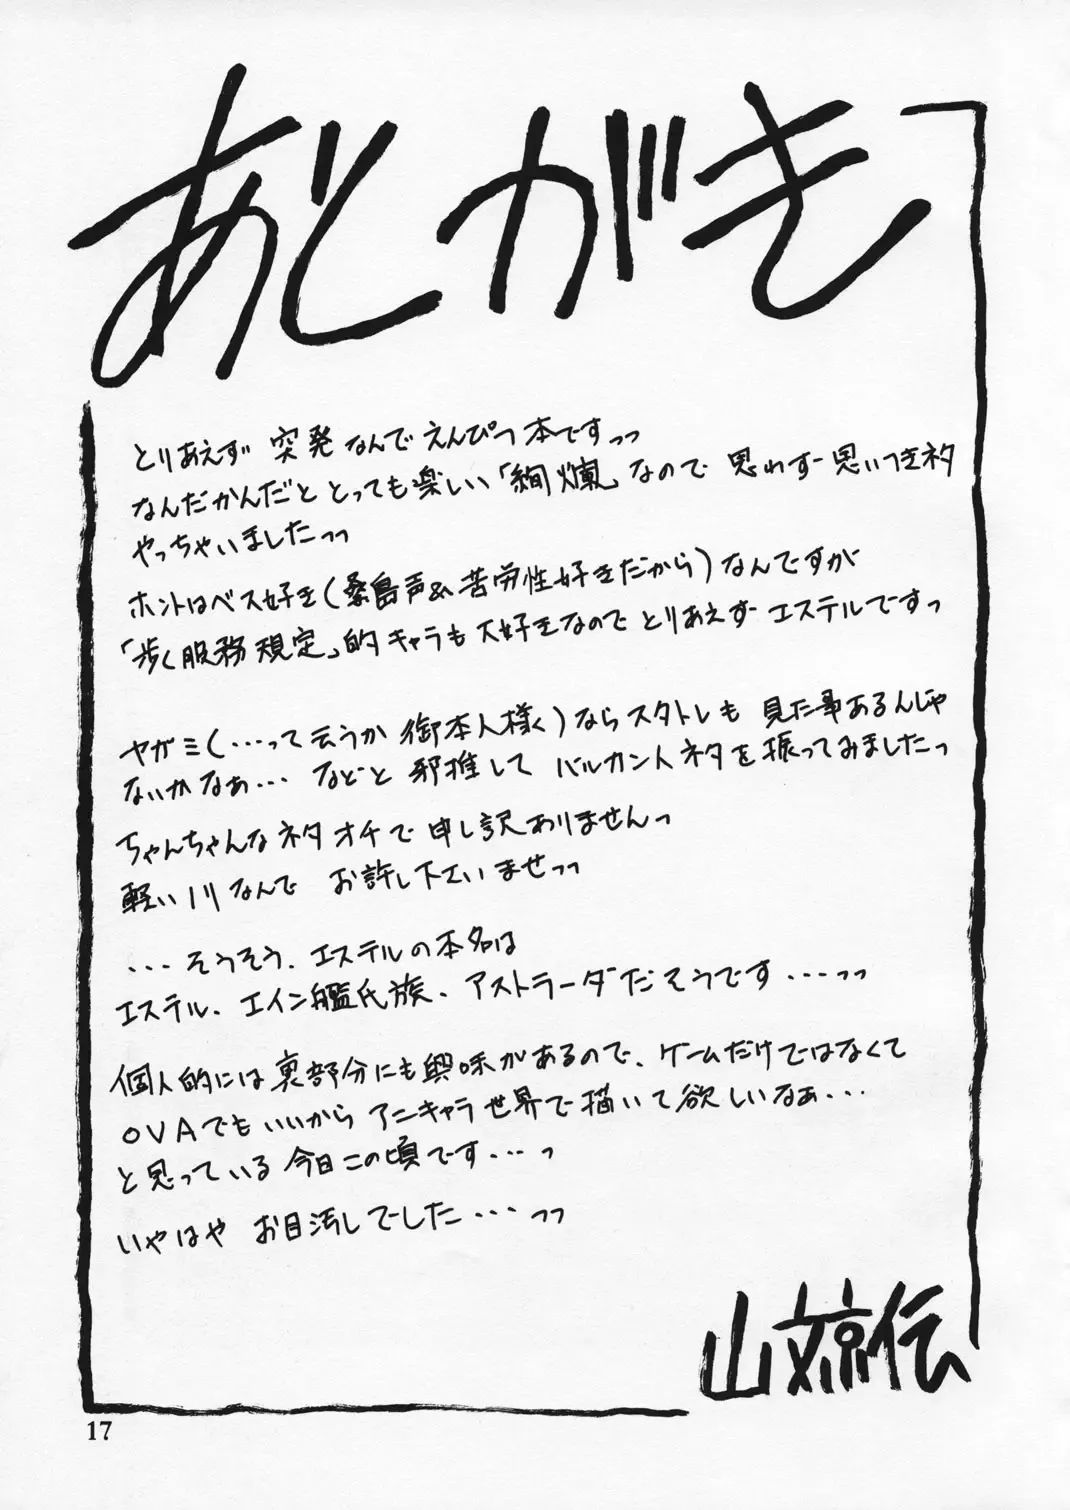 あとがき
とりあえず 突発なんでえんぴつ本ですっっ
なんだかんだととっても楽しい「絢爛」なので 思わず思いつきネタ
やっちゃいましたっっ
ホントはベス好き(桑島声&苦労性好きだから)なんですが
「歩く服務規定」的キャラも大好きなのでとりあえずエステルですっ
ヤガミ(…って云うか 御本人様く)ならスタトレも 見た事あるんじゃ
ないかなぁ… などと 邪推して バルカン人ネタを振ってみましたっ
ちゃんちゃんなネタオチで申し訳ありませんっ
軽いノリなんで お許し下さいませっっ
…そうそう、エステルの本名は
エステル、エイン艦氏族、アストラーダだそうです…っっ
個人的には裏部分にも興味があるので、ゲームだけではなくて
OVAでもいいからアニキャラ世界で描いて欲しいなぁ…
と思っている今日この頃です…っ
いやはや お目汚しでした…っっ
山文京伝
17